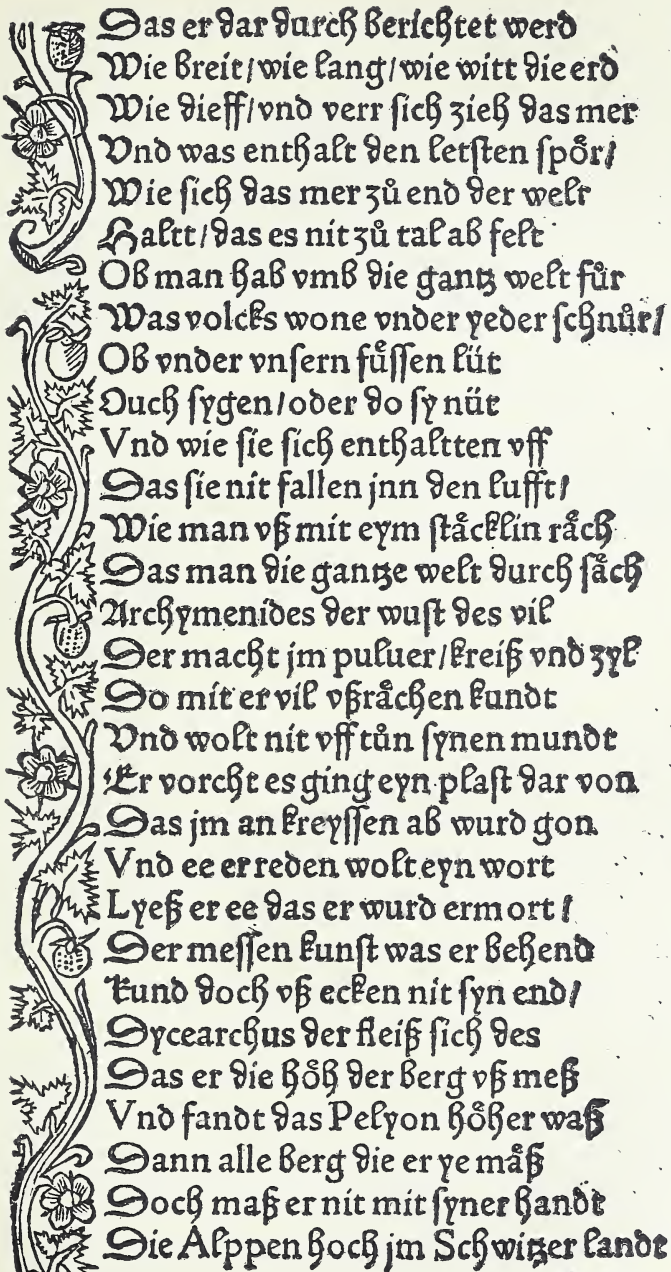 Das er dar durch berichtet werd
Wie breit / wie lang / wie witt die erd
Wie dieff / vnd verr sich zieh das mer
Vnd was enthalt den letsten spör /
Wie sich das mer zů end der welt
Haltt / das es nit zů tal ab felt
Ob man hab vmb die gantz welt fůr
Was volcks wone vnder yeder schnůr /
Ob vnder vnsern fůssen lüt
Ouch sygen / oder do sy nüt
Vnd wie sie sich enthaltten vff
Das sie nit fallen jnn den lufft /
Wie man vß mit eym stäcklin räch
Das man die gantze welt durch säch
Archymenides der wust des vil
Der macht jm puluer / kreiß vnd zyl
Do mit er vil vßrächen kundt
Vnd wolt nit vff tůn synen mundt
Er vorcht es ging eyn plast dar von
Das jm an kreyssen ab wurd gon
Vnd ee er reden wolt eyn wort
Lyeß er ee das er wurd ermort /
Der messen kunst was er behend
kund doch vß ecken nit syn end /
Dycearchus der fleiß sich des
Das er die höh der berg vß meß
Vnd fandt das Pelyon höher waß
Dann alle berg die er ye mäß
Doch maß er nit mit syner handt
Die Alppen hoch jm Schwitzer landt